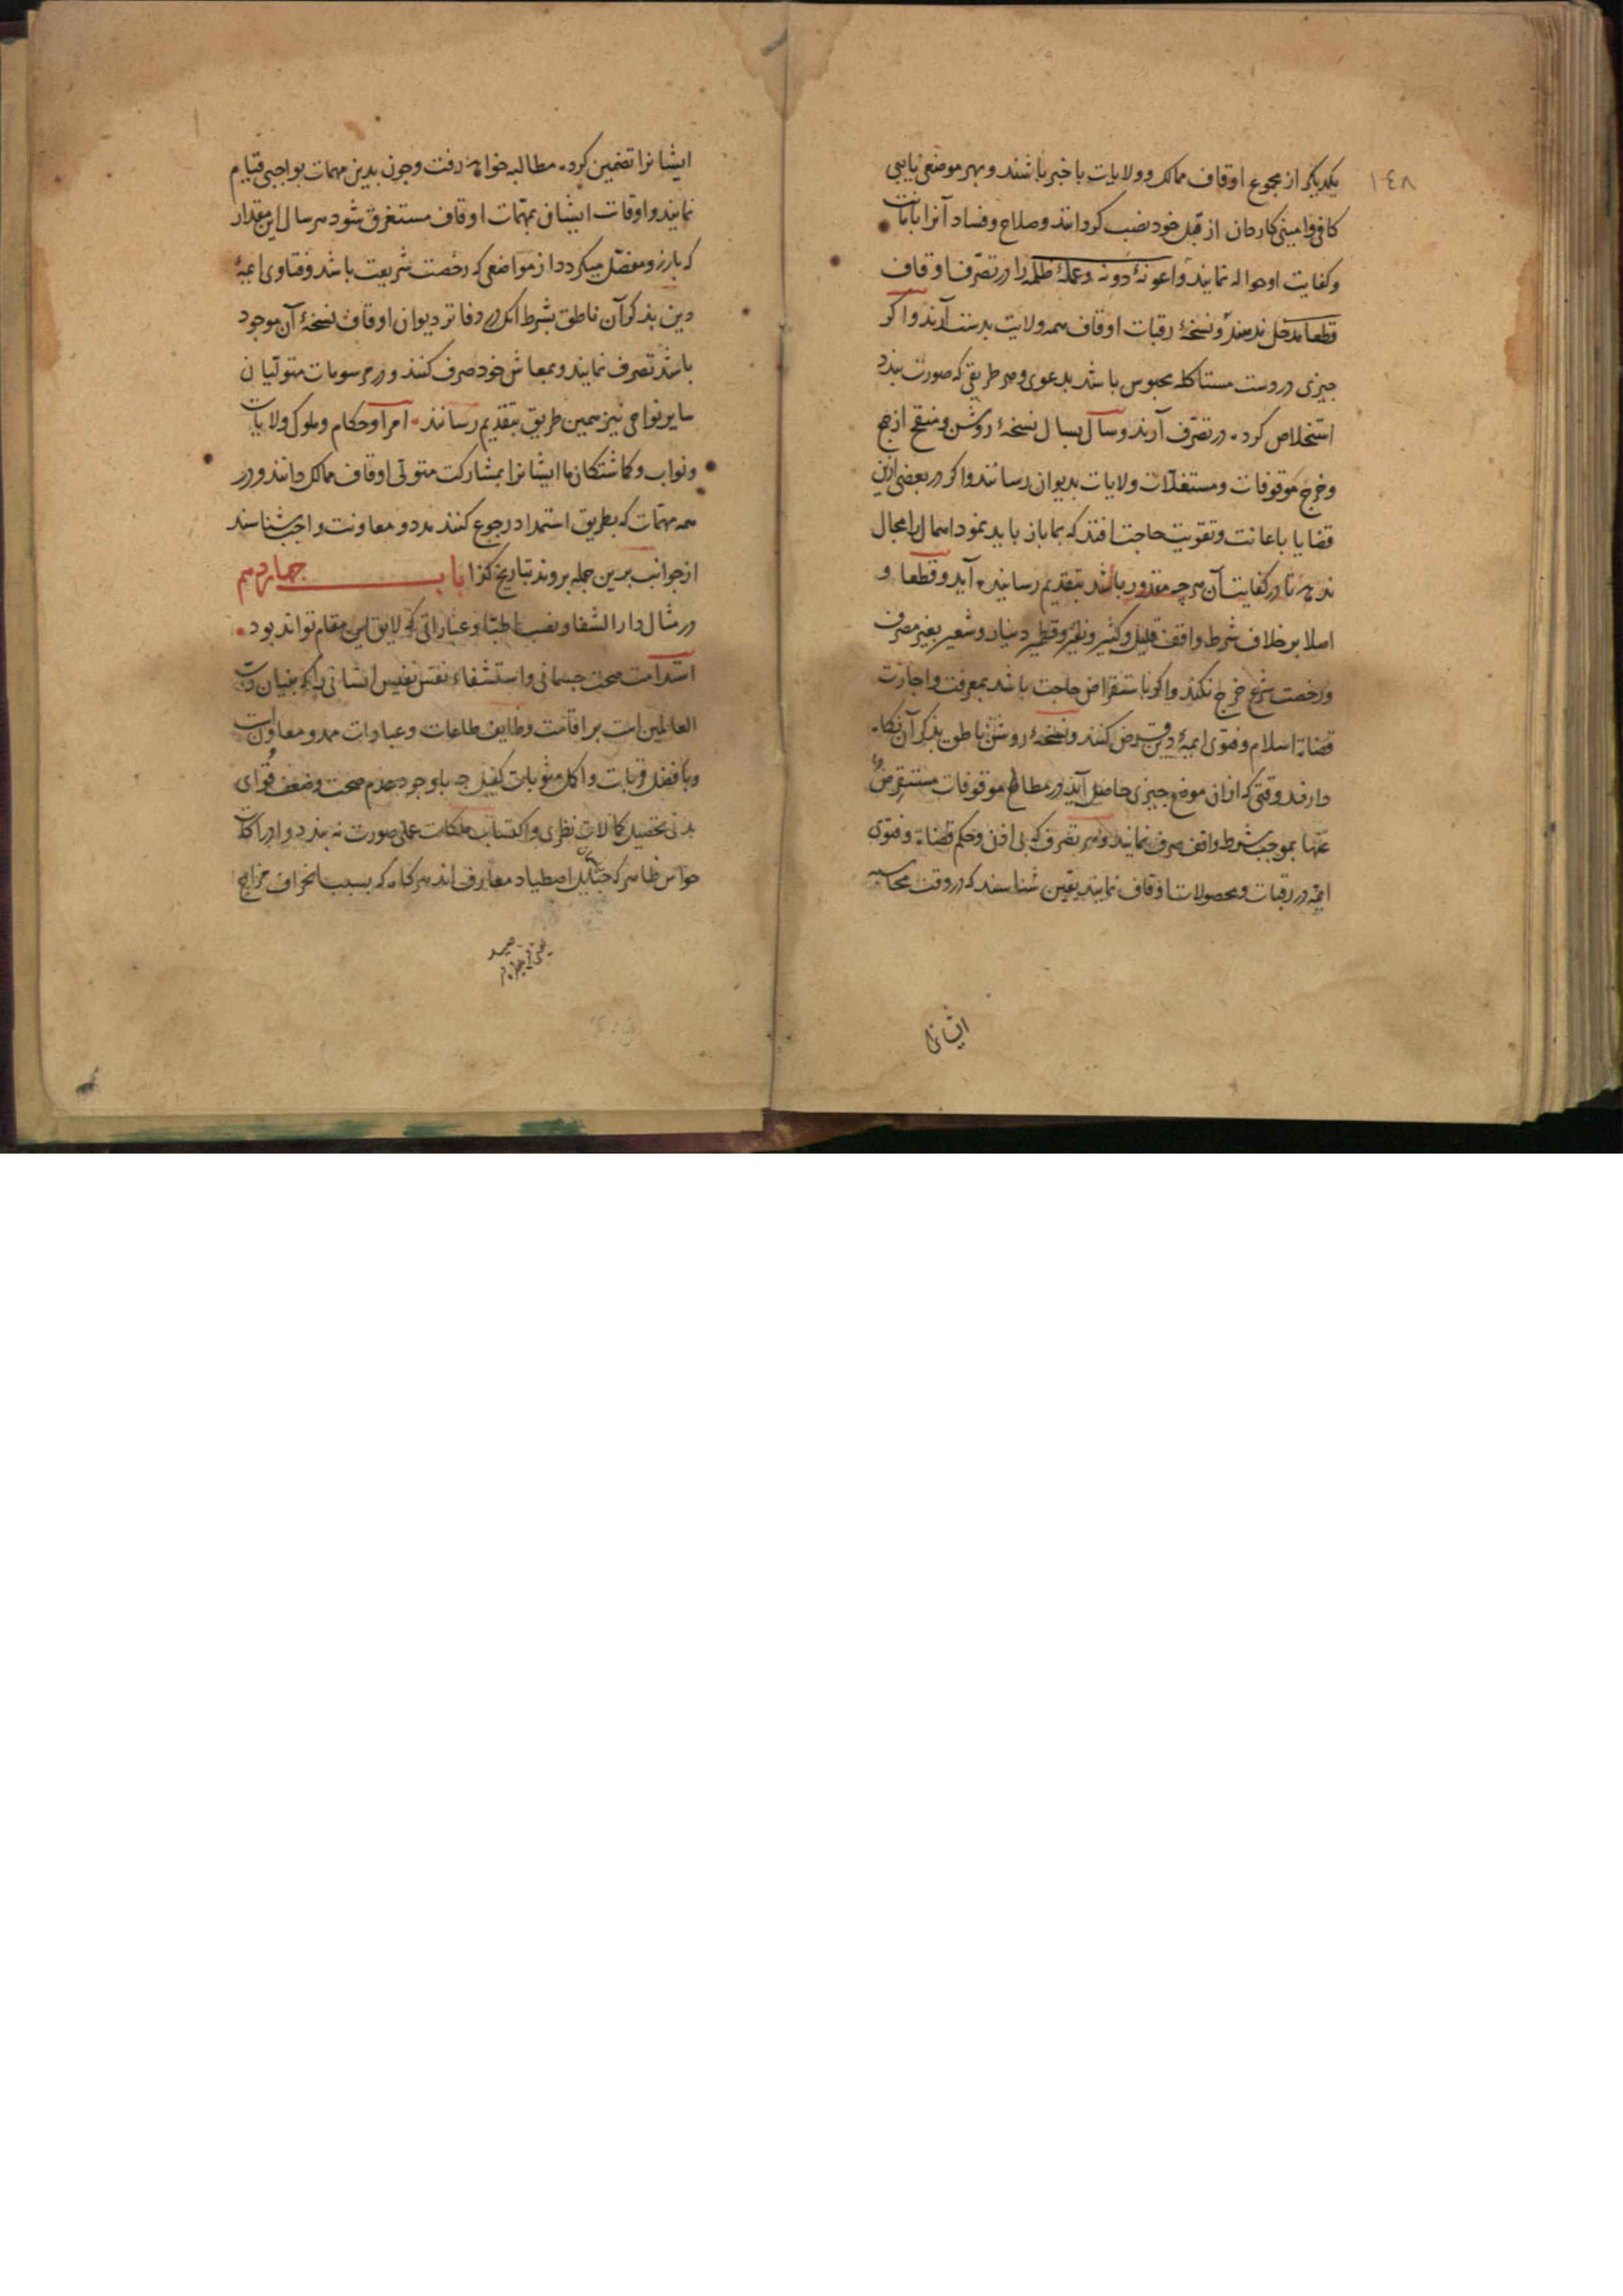 ١٤٨
یکدیگر از مجموع اوقاف ممالک و ولایات با خبر باشند و بهر موضعی نایبی
کافی و امینی کاردان از قبل خود نصب کردانند و صلاح و فساد آنرا بامانت
و کفایت او حواله نمایند و اعونهٔ دونه و عملهٔ ظلمه را در تصرف اوقاف
قطعا مدخل ندهند و نسخهٔ رقبات اوقاف همه ولایت بدست آرند و اکر
چیزی در دست مستاکله محبوس باشد بدعوی و هر طریقی که صورت بندد
استخلاص کرده در تصرف آرند و سال بسال نسخهٔ روشن و منقح از جمع
و خرج موقوفات و مستغلات ولایات بدیوان رسانند و اکر در بعضی ازین
قضایا باعانت و تقویت حاجت افتد که بما باز باید نمود اهمال را مجال
ندهد تا در کفایت آن هر چه مقدور باشد بتقدیم رسانیده آید و قطعا و
اصلا بر خلاف شرط واقف قلیل و کثیر و نقیر و قطمیر دینار و شعیر بغیر مصرف
و رخصت شرع خرج نکنند و اکر باستقراض حاجت باشد بمعرفت و اجازت
قضاة اسلام و فتوی ایمهٔ دین قرض کنند و نسخهٔ روشن ناطق بذکر آن نکاه
دارند و وقتی که ازان موضع چیزی حاصل آید در مطالع موقوفات مستقرض
عنها بموجب شرط واقف صرف نمایند و هر تصرف که بی اذن و حکم قضاة و فتوی
ایمه در رقبات و محصولات اوقاف نمایند یقین شناسند که در وقت محاسبه
ایشانرا
ایشانرا تضمین کرده مطالبه خواهد رفت و چون بدین مهمات بواجبی قیام
نمایند و اوقات ایشان بمهمات اوقاف مستغرق شود هر سال این مقدار
که بارز و مفصل میکردد از مواضعی که رخصت شریعت باشد و فتاوی ایمهٔ
دین بذکر آن ناطق بشرط آنکه در دفاتر دیوان اوقاف نسخهٔ آن موجود
باشد تصرف نمایند و بمعاش خود صرف کنند و در مرسومات متولیان
سایر نواحی نیز همین طریق بتقدیم رسانند امرا و حکام و ملوک ولایات
و نواب و کماشتکان ما ایشانرا بمشارکت متولی اوقاف ممالک دانند و در
همه مهمات که بطریق استمداد رجوع کنند مدد و معاونت واجب شناسند
از جوانب برین جمله بروند بتاریخ کذا باب چهاردهم
در مثال دار الشفا و نصب اطبا و عباراتی که لایق این مقام تواند بود
استدامت صحت جسمانی و استشفاء نفس نفیس انسانی را که بنیان رب
العالمین است بر اقامت وظایف طاعات و عبادات ممد و معاون است
و بافضل قربات و اکمل مثوبات کفیل چه باوجود عدم صحت و ضعف قوای
بدنی تحصیل کمالات نظری و اکتساب ملکات عملی صورت نه بندد و ادراکات
حواس ظاهر که حبایل اصطیاد معارف اند هرکاه که بسبب انحراف مزاج